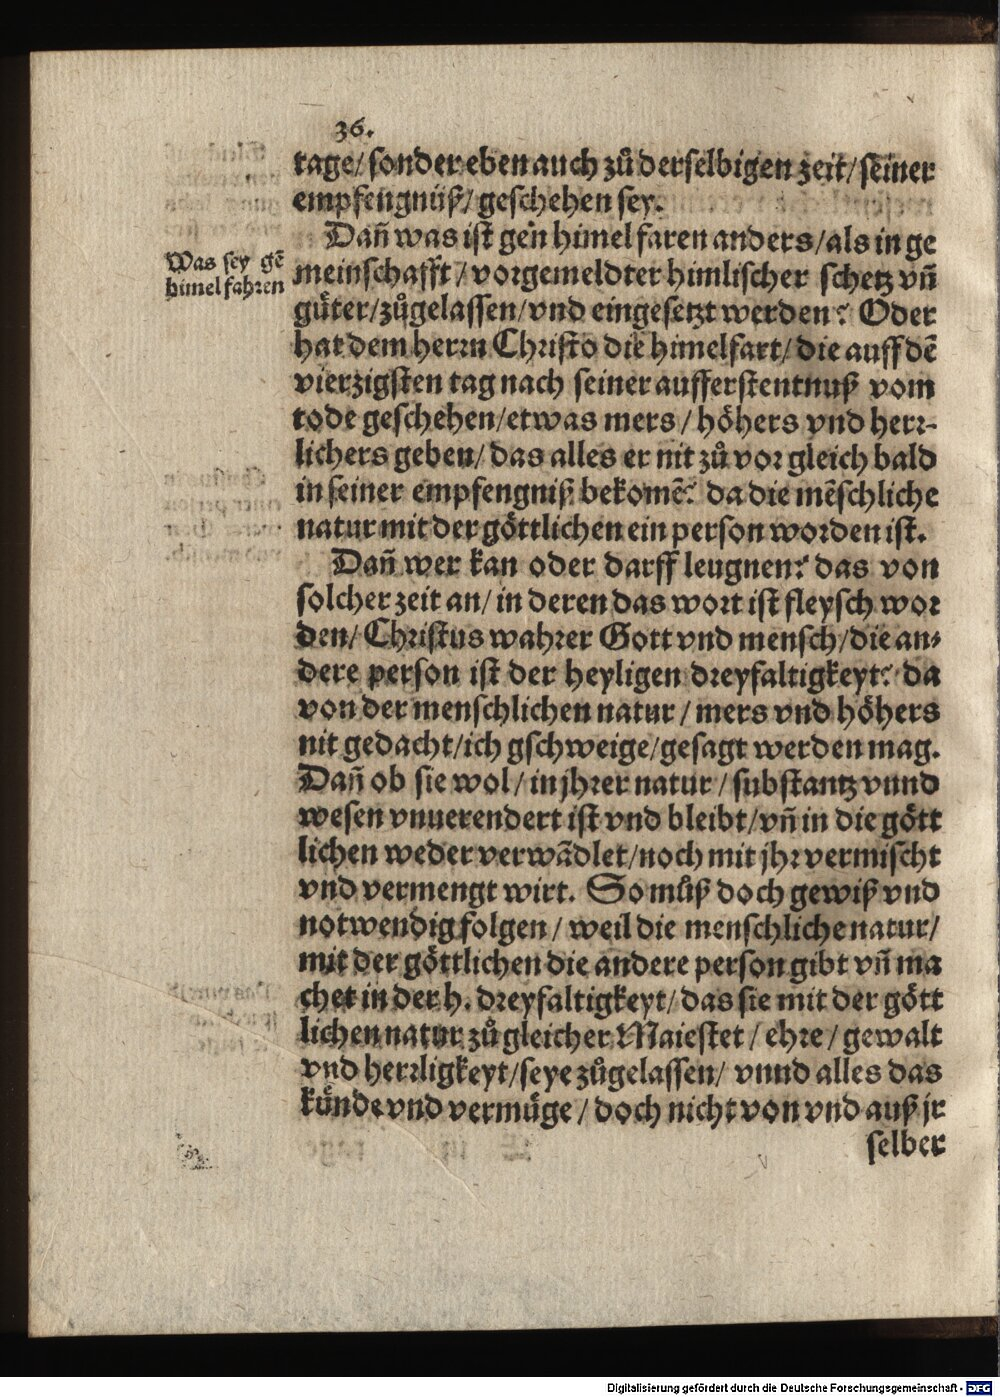 36.
tage/ sonder eben auch zů derselbigen zeit/ seiner
empfengnüß/ geschehen sey.
Dañ was ist gen himel faren anders/als in ge
Was sey gē
himel fahren
meinschafft/ vorgemeldter himlischer schetz vñ
güter/zůgelassen/vnd eingesetzt werden? Oder
hat dem herrn Christo die himelfart/ die auff dē
vierzigsten tag nach seiner aufferstentnuß vom
tode geschehen/etwas mers/ höhers vnd herr-
lichers geben/ das alles er nit zů vor gleich bald
in seiner empfengniß bekomē? da die mēschliche
natur mit der göttlichen ein person worden ist.
Dañ wer kan oder darff leugnen? das von
solcher zeit an/ in deren das wort ist fleysch wor
den/ Christus wahrer Gott vnd mensch/die an-
dere person ist der heyligen dreyfaltigkeyt? da
von der menschlichen natur/ mers vnd höhers
nit gedacht/ich gschweige/gesagt werden mag.
Dañ ob sie wol/ in jhrer natur/ substantz vnnd
wesen vnuerendert ist vnd bleibt/vñ in die gött
lichen weder verwādlet/noch mit jhr vermischt
vnd vermengt wirt. So můß doch gewiß vnd
notwendig folgen/ weil die menschliche natur/
mit der göttlichen die andere person gibt vñ ma
chet in der h. dreyfaltigkeyt/ das sie mit der gött
lichen natur zů gleicher Maiestet/ ehre/ gewalt
vnd herrligkeyt/seye zůgelassen/ vnnd alles das
künde vnd vermüge/ doch nicht von vnd auß jr
selber
Digitalisierung gefördert durch die Deutsche Forschungsgemeinschaft - DFG